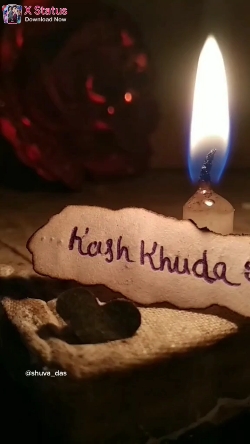 X Status
Download Now
Kash Khuda
@shuva_das